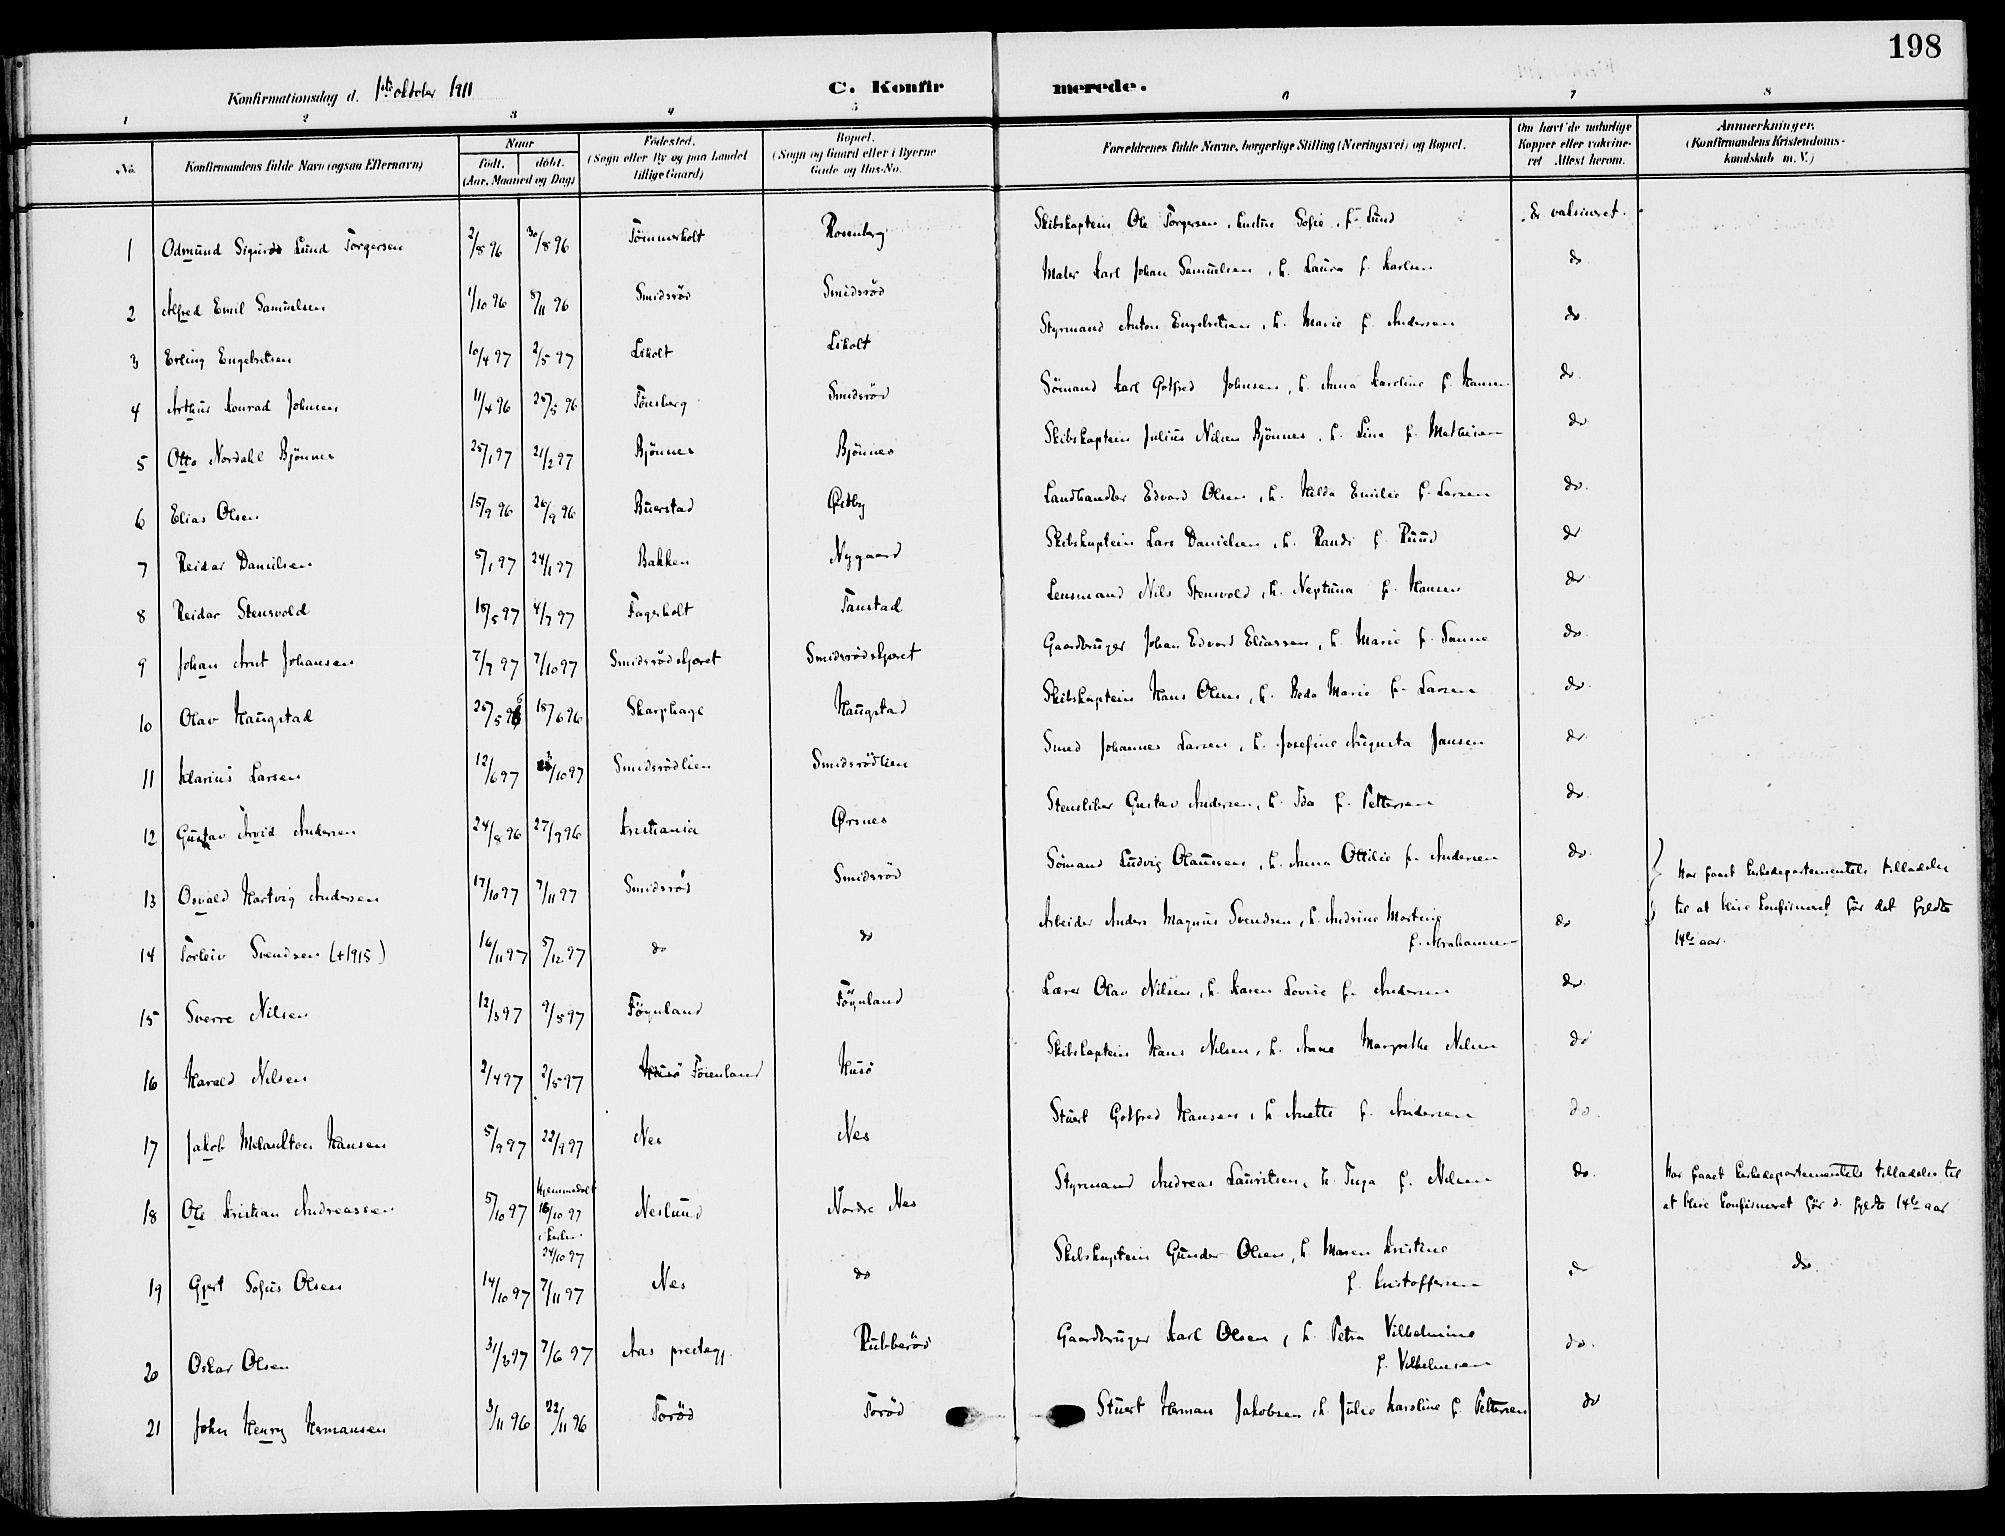 198
Konfirmationsdag d. 1ste oktober 1911 C. Konfirmerede.
1 2 3 4 5 6 7 8
No. Konfirmandens fulde Navn (ogsaa Efternavn) Naar født. døbt. (Aar, Maaned og Dag) Fødested. (Sogn eller By og paa Landet tillige Gaard) Bopæl. (Sogn og Gaard eller i Byerne Gade og Hus-No. Forældrenes fulde Navne, borgerlige Stilling (Næringsvei) og Bopæl. Om havt de naturlige Kopper eller vakcineret Attest herom. Anmærkninger. (Konfirmandens Kristendomskundskab m. V.)
1 Odmund Sigurds Lund Torgersen 2/8 96 30/8 96 Tömmerholt Rosenberg Skibskaptein Ole Torgersen, hustru Sofie, f. Lund Er vaksineret.
2 Alfred Emil Samuelsen 1/10 96 8/11 96 Smidsröd Smidsröd Maler Karl Johan Samuelsen, h. Laura f. Karlsen do
3 Erling Engebretsen 10/4 97 2/5 97 Likolt Likolt Styrmand Anton Engebretsen, h. Marie f. Andersen do
4 Arthur Konrad Johnsen 11/4 96 25/5 96 Tönsberg Smidsröd Sömand Karl Gotfred Johnsen, h. Anna Karoline f. Hansen do
5 Otto Nordahl Bjönnes 25/1 97 21/2 97 Bjönnes Bjönnes Skibskaptein Julius Nilsen Bjönnes, h. Lina f. Mathisen do
6 Elias Olsen 15/9 96 26/9 96 Buerstad Østby Landhandler Edvard Olsen, h. Hilda Emilie f. Larsen do.
7 Reidar Danielsen 5/1 97 24/1 97 Bakken Nygaard Skibskaptein Lars Danielsen, h. Randi f. Ruud do
8 Reidar Stensvold 18/5 97 4/7 97 Fagerholt Tanstad Lensmand Nils Stensvold, h. Neptuna f. Hansen do
9 Johan Arnt Johansen 7/7 97 7/10 97 Smidsrödskjæret Smidsrödskjæret Gaardbruger Johan Edvard Eliassen, h. Marie f. Sanne do.
10 Olav Haugstad 25/5 96 15/6 96 Skarphage Haugstad Skibskaptein Hans Olsen, h. Beda Marie f. Larsen do.
11 Klarius Larsen 12/6 97 3/10 97 Smidsrödlien Smidsrödlien Smed Johannes Larsen, h. Josefine Augusta Jansen do.
12 Gustav Arvid Andersen 24/8 96 27/9 96 Kristiania Ørsnes Stensliber Gustav Andersen, h. Ida f. Pettersen do.
13 Osvald Hartvig Andersen 17/10 97 7/11 97 Smidsröd Smidsröd Sömand Ludvig Olaussen, h. Anna Ottilie f. Andersen do. Har faaet Kirkedepartementets tilladelse
til at blive konfirmeret för det fyldte
14de aar.
14 Torleiv Svendsen (+1915) 16/11 97 5/12 97 do do Arbeider Anders Magnus Svendsen, h. Andrine Martine
f. Abrahamsen do
15 Sverre Nilsen 12/3 97 9/5 97 Föynland Föynland Lærer Olav Nilsen, h. Karen Lovise f. Andersen do.
16 Harald Nilsen 2/4 97 2/5 97 Husö Föienland Husö Skibskaptein Hans Nilsen, h. Anna Margrethe Nilsen do
17 Jakob Melankton Hansen 5/9 97 22/9 97 Nes Nes Stuert Gotfred Hansen, h. Anette f. Andersen do.
18 Ole Kristian Andreassen 5/10 97 Hjemmedøbt
16/10 97
i kirken
24/10 97 Neslund Nordre Nes Styrmand Andreas Lauritsen, h. Inga f. Nilsen do. Har faaet Kirkedepartementets tilladelse til
at blive konfirmeret för d. fyldte 14de aar
19 Gjert Sofus Olsen 14/10 97 7/11 97 Nes do Skibskaptein Gunder Olsen, h. Maren Kristine
f. Kristoffersen do do.
20 Oskar Olsen 31/3 97 7/6 97 Aas prestegj. Rubberöd Gaardbruger Karl Olsen, h. Petra Vilhelmine
f. Vilhelmsen do.
21 John Henry Hermansen 3/11 96 22/11 96 Toröd Toröd Stuert Herman Jakobsen, h. Julie Karoline f. Pettersen do